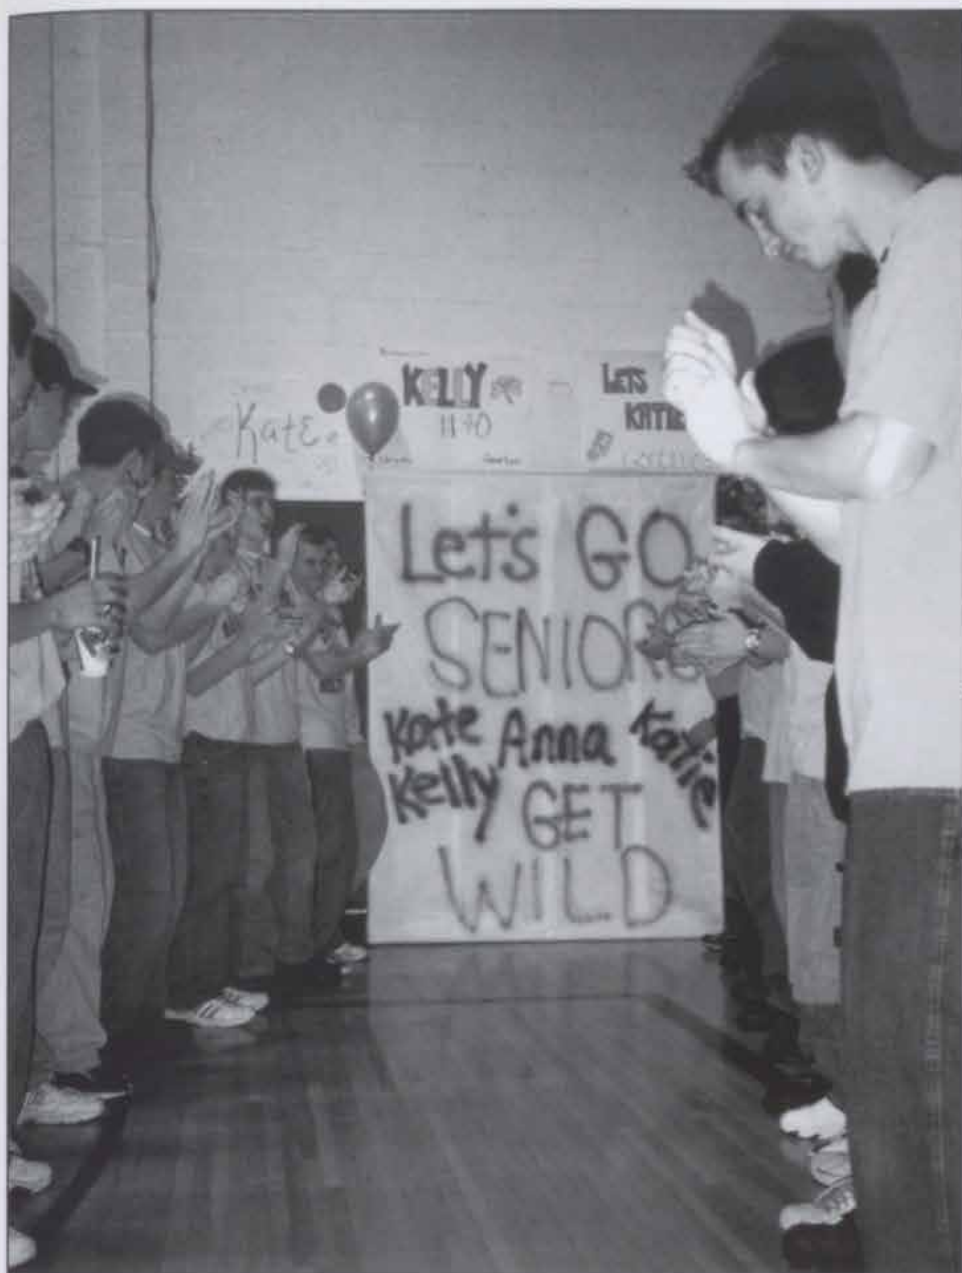 Kate
KELLY
LETS
KATIE
Let's GO
SENIORS
Kate Anna Katie
Kelly GET
WILD